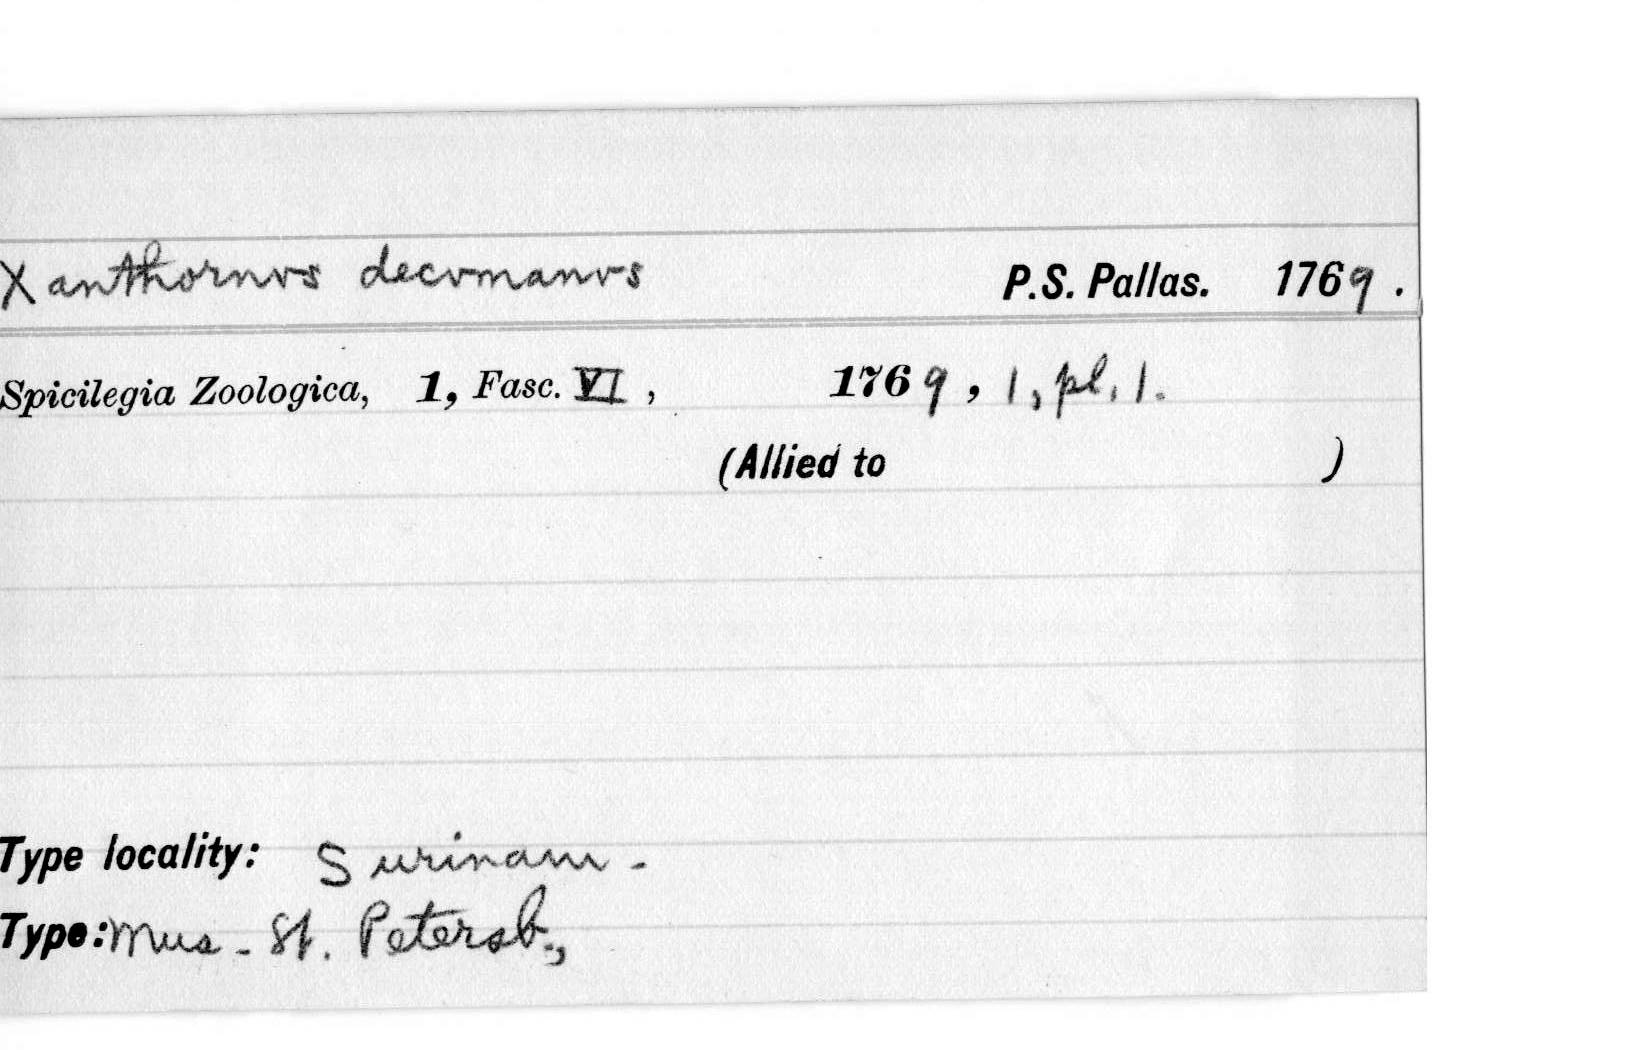 Xanthornvs decvmanvs P.S. Pallas. 1769.
Spicilegia Zoologica, 1, Fasc. VI, 1769, 1, pl. 1.
(Allied to )
Type locality: Surinam -
Type: Mus - St. Petersb.,